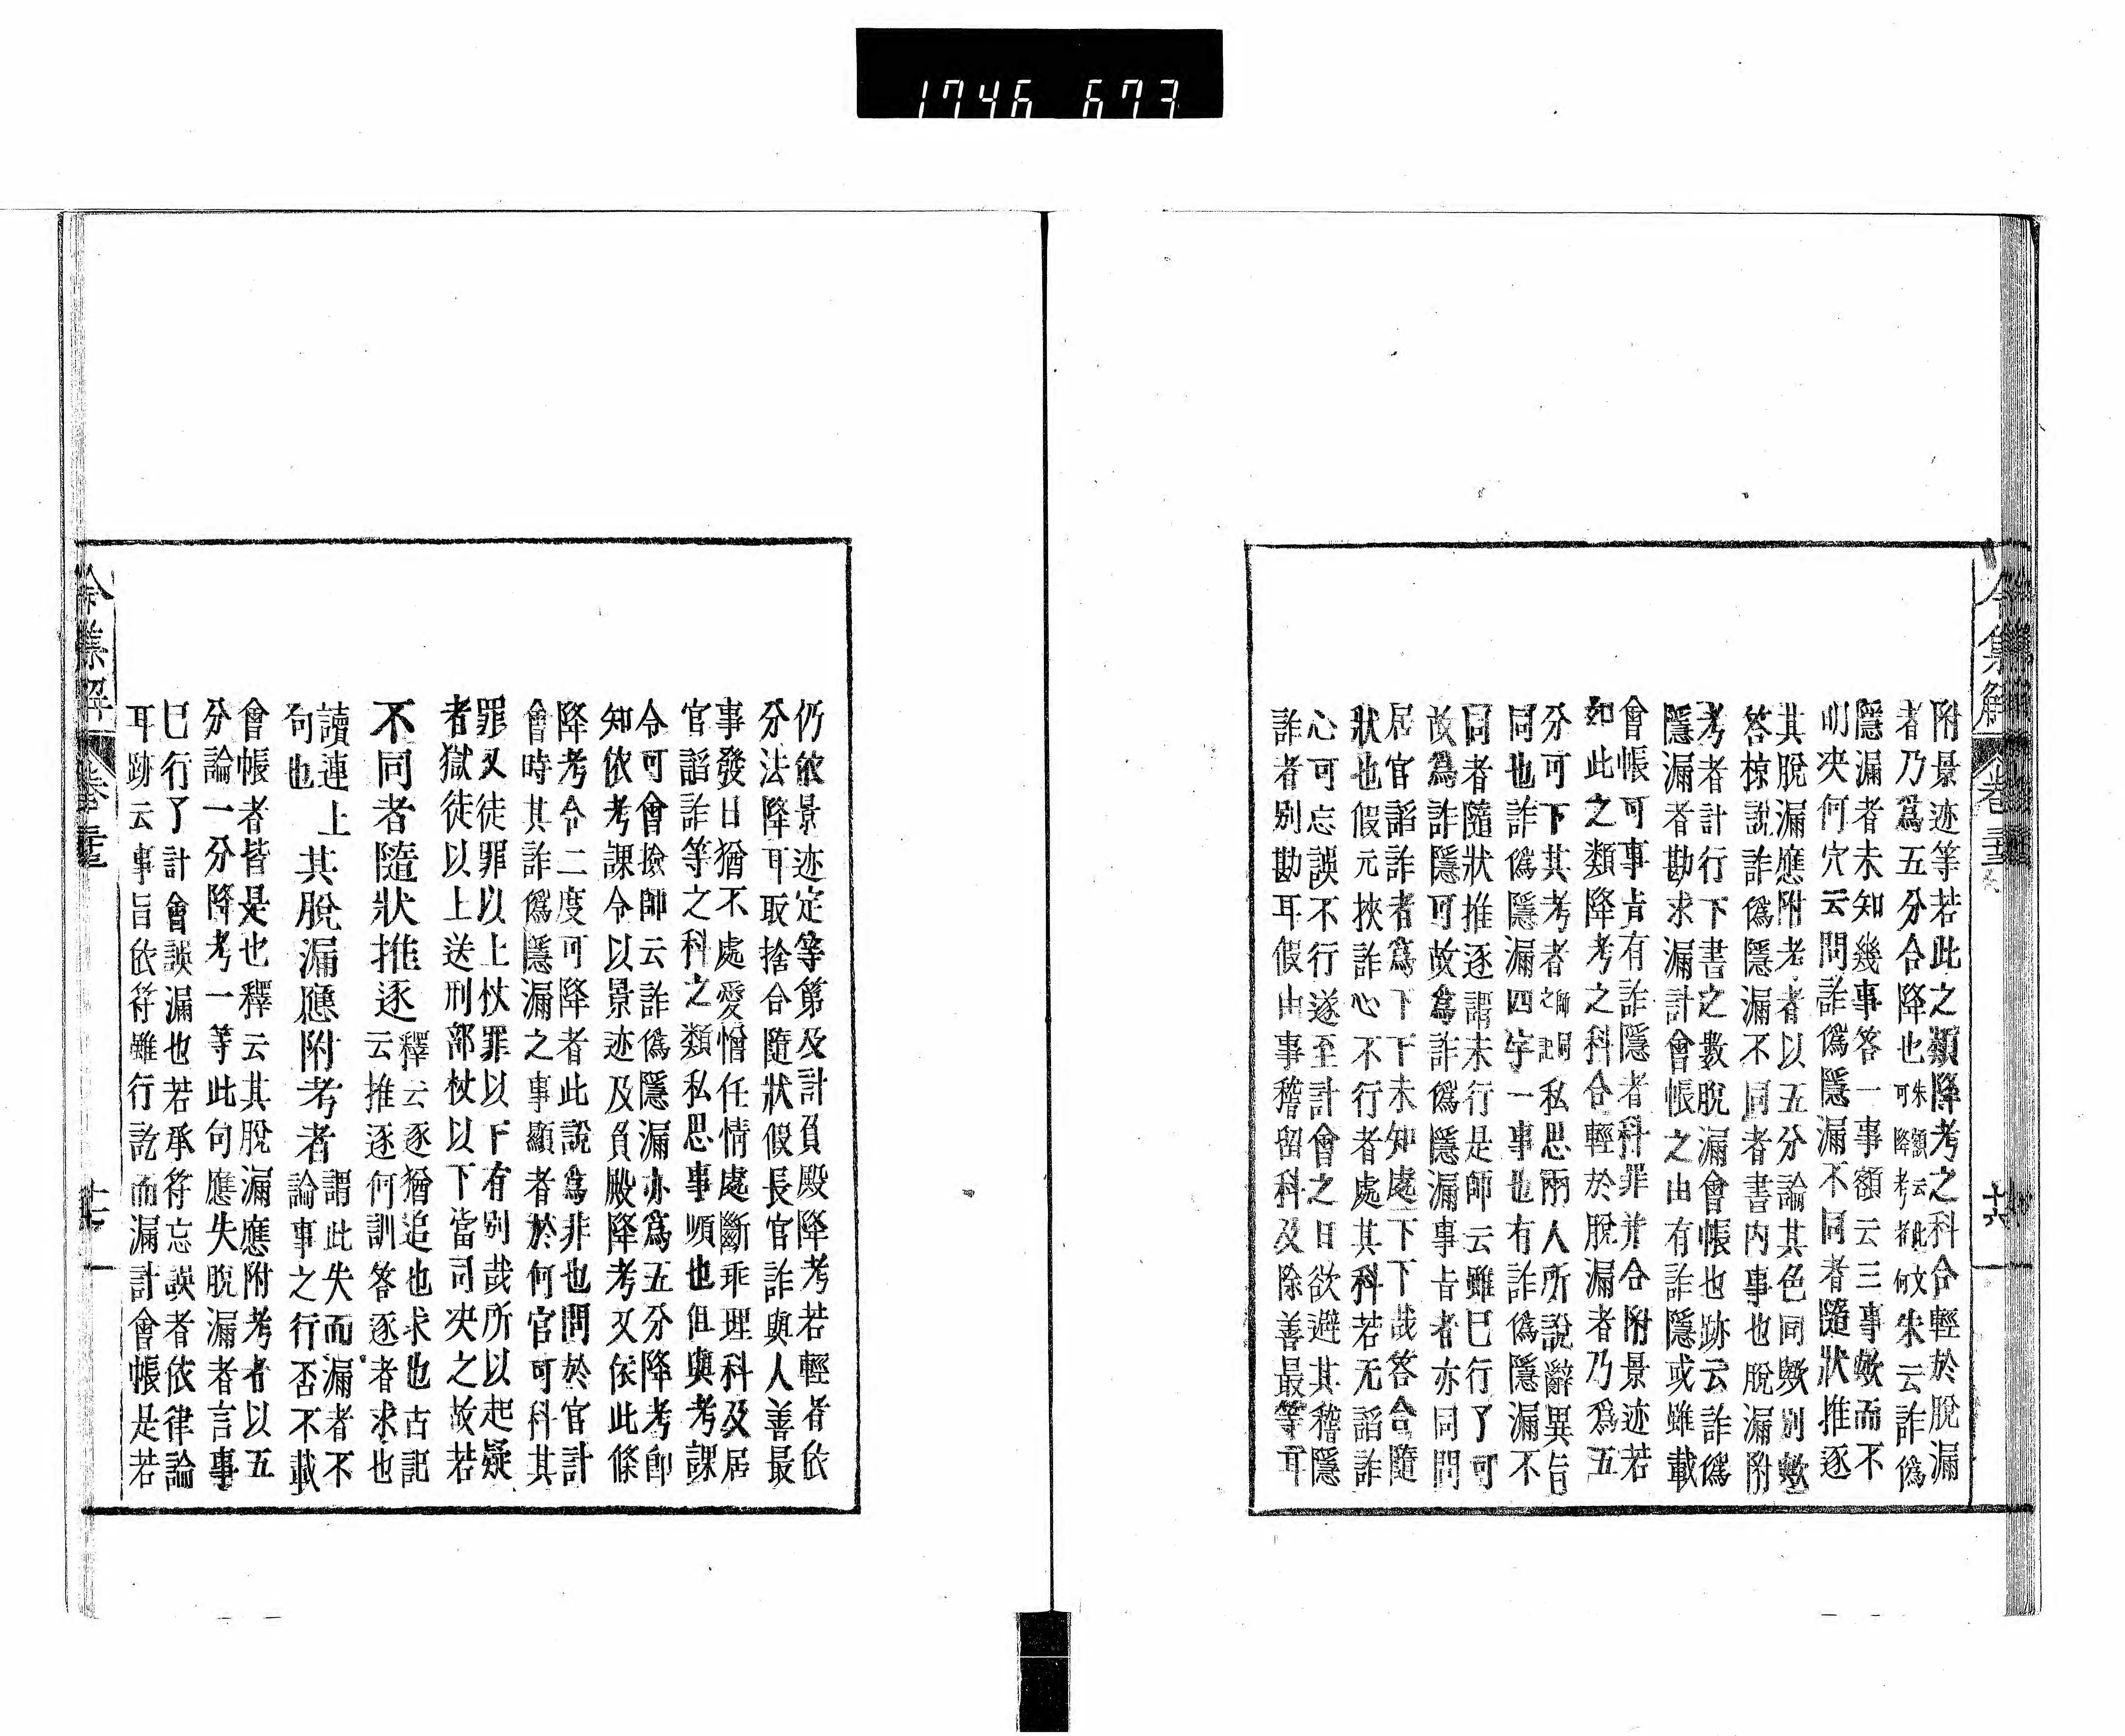 1746 673
令集解 卷
附景迹等若此之類降考之科合輕於脫漏
者乃爲五分合降也朱額云此文
可降考者何朱云詐僞
隱漏者未知幾事答一事額云三事欤而不
明決何穴云問詐僞隱漏不同者隨狀推逐
其脫漏應附考者以五分論其色同欤別欤
答椋說詐僞隱漏不同者書內事也脫漏附
考者計行下書之數脫漏會帳也跡云詐僞
隱漏者勘求漏計會帳之由有詐隱或雖載
會帳可事旨有詐隱者科罪幷合附景迹若
如此之類降考之科合輕於脫漏者乃爲五
分可下其考者私思兩人所說辭異旨
同也詐僞隱漏四字一事也有詐僞隱漏不
同者隨狀推逐謂未行是師云雖已行了可
故爲詐隱可故爲詐僞隱漏事旨者亦同問
居官諂詐者爲下下未知處下下哉答合隨
狀也假元挾詐心不行者處其科若无諂詐
心可忘誤不行遂至計會之日欲避其稽隱
詐者別勘耳假由事稽留科及除善最等耳
仍依景迹定等第及計負殿降考若輕者依
分法降耳取捨合隨狀假長官詐與人善最
事發日猶不處愛憎任情處斷乖理科及居
官諂詐等之科之類私思事順也但與考課
令可會撿師云詐僞隱漏亦爲五分降考卽
知依考課令以景迹及負殿降考又依此條
降考令二度可降者此說爲非也問於官計
會時其詐僞隱漏之事顯者於何官可科其
罪又徒罪以上杖罪以下有別哉所以起疑
者獄徒以上送刑部杖以下當司決之故若
不同者隨狀推逐釋云逐猶追也求也古記
云推逐何訓答逐者求也
讀連上
句也其脫漏應附考者謂此失而漏者不
論事之行否不載
會帳者皆是也釋云其脫漏應附考者以五
分論一分降考一等此句應失脫漏者言事
已行了計會誤漏也若承符忘誤者依律論
耳跡云事旨依符雖行訖而漏計會帳是若
令集解 卷